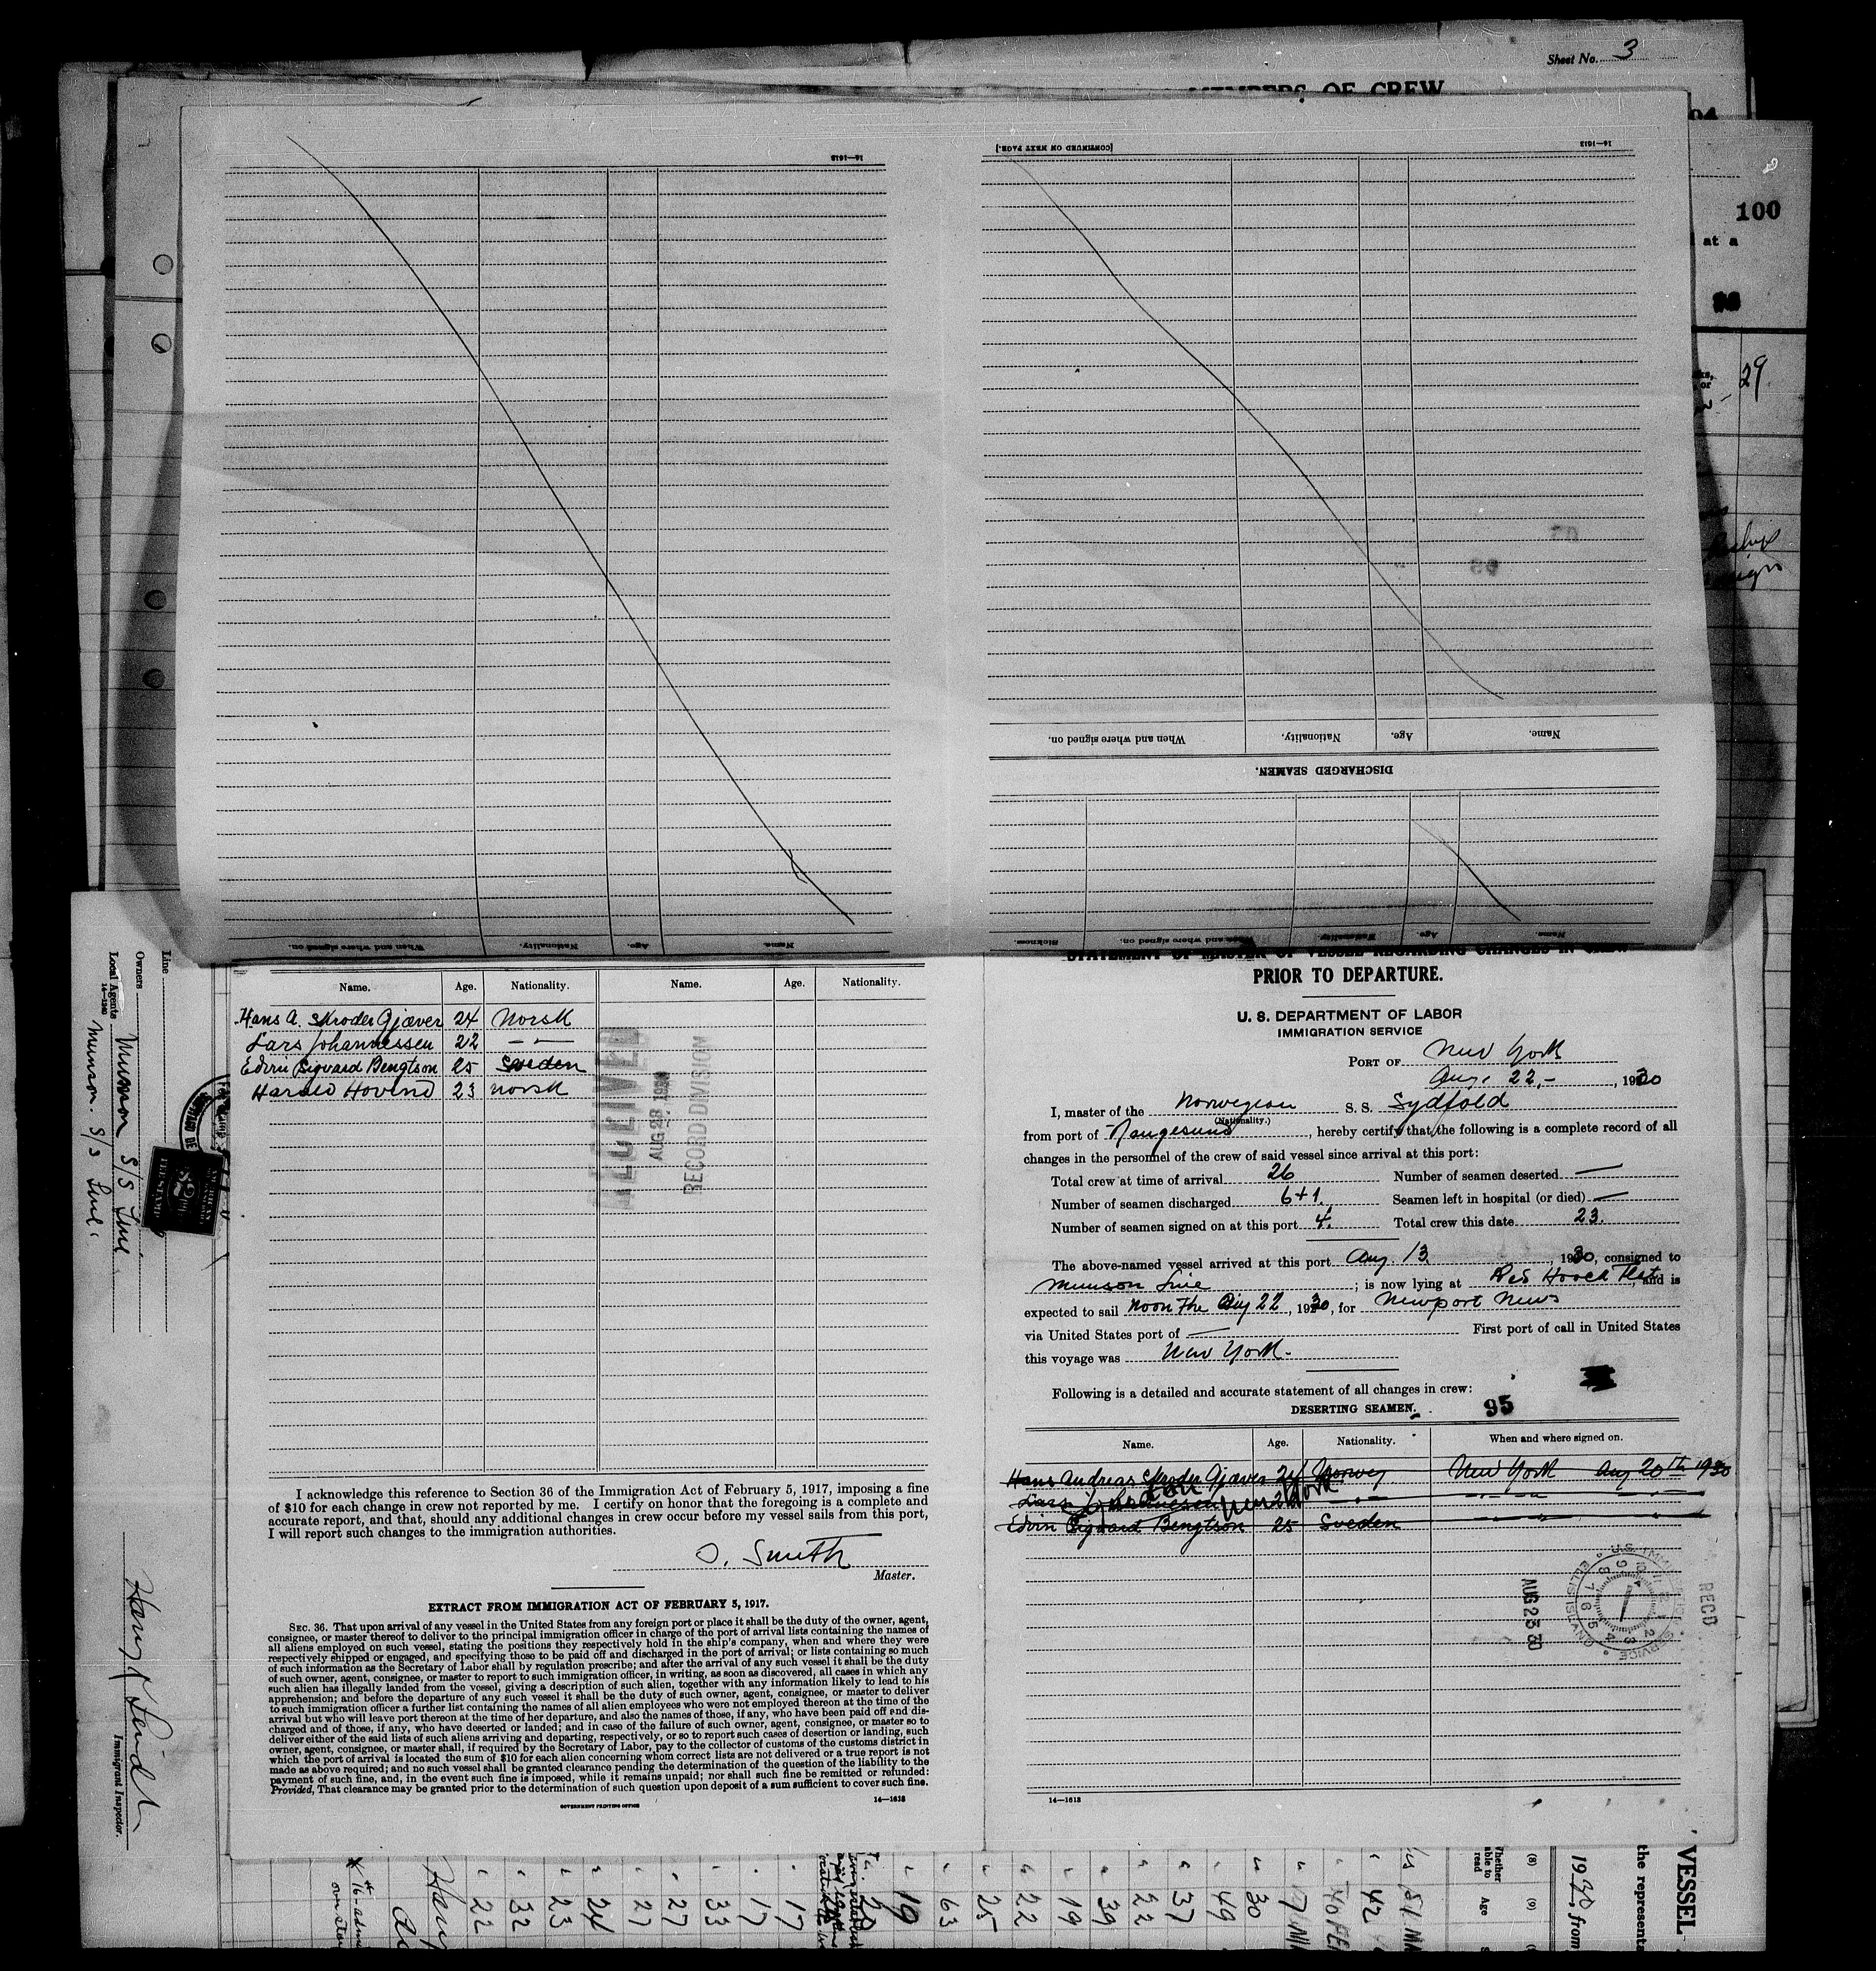 Sheet No. 3
MEMBERS OF CREW
100
at a
29
14—1613
[CONTINUED ON NEXT PAGE.]
14—1613
When and where signed on.
Nationality.
Age.
Name.
DISCHARGED SEAMEN.
When and where signed on.
Nationality.
Age.
Name.
Sickness.
When and where signed on.
Nationality.
Age.
Name.
Line
Owners Munson S/S Line
Local Agents Munson S/S Line
14—1240
Harry Leidt
Immigrant Inspector.
Name. Age. Nationality. Name. Age. Nationality.
Hans A. Skroder Gjæver 24 Norsk
Lars Johannessen 22 —"—
Edvin Sigvard Bengtson 25 Sweden
Harald Hovind 23 norsk
RECEIVED
AUG 28 1930
RECORD DIVISION
I acknowledge this reference to Section 36 of the Immigration Act of February 5, 1917, imposing a fine
of $10 for each change in crew not reported by me. I certify on honor that the foregoing is a complete and
accurate report, and that, should any additional changes in crew occur before my vessel sails from this port,
I will report such changes to the immigration authorities.
O. Smith
Master.
EXTRACT FROM IMMIGRATION ACT OF FEBRUARY 5, 1917.
SEC. 36. That upon arrival of any vessel in the United States from any foreign port or place it shall be the duty of the owner, agent,
consignee, or master thereof to deliver to the principal immigration officer in charge of the port of arrival lists containing the names of
all aliens employed on such vessel, stating the positions they respectively hold in the ship's company, when and where they were
respectively shipped or engaged, and specifying those to be paid off and discharged in the port of arrival; or lists containing so much
of such information as the Secretary of Labor shall by regulation prescribe; and after the arrival of any such vessel it shall be the duty
of such owner, agent, consignee, or master to report to such immigration officer, in writing, as soon as discovered, all cases in which any
such alien has illegally landed from the vessel, giving a description of such alien, together with any information likely to lead to his
apprehension; and before the departure of any such vessel it shall be the duty of such owner, agent, consignee, or master to deliver
to such immigration officer a further list containing the names of all alien employees who were not employed thereon at the time of the
arrival but who will leave port thereon at the time of her departure, and also the names of those, if any, who have been paid off and dis-
charged and of those, if any, who have deserted or landed; and in case of the failure of such owner, agent, consignee, or master so to
deliver either of the said lists of such aliens arriving and departing, respectively, or so to report such cases of desertion or landing, such
owner, agent, consignee, or master shall, if required by the Secretary of Labor, pay to the collector of customs of the customs district in
which the port of arrival is located the sum of $10 for each alien concerning whom correct lists are not delivered or a true report is not
made as above required; and no such vessel shall be granted clearance pending the determination of the question of the liability to the
payment of such fine, and, in the event such fine is imposed, while it remains unpaid; nor shall such fine be remitted or refunded:
Provided, That clearance may be granted prior to the determination of such question upon deposit of a sum sufficient to cover such fine.
GOVERNMENT PRINTING OFFICE
14—1613
STATEMENT OF MASTER OF VESSEL REGARDING CHANGES IN CREW
PRIOR TO DEPARTURE.
U. S. DEPARTMENT OF LABOR
IMMIGRATION SERVICE
PORT OF New York
Aug. 22,- , 1930
I, master of the Norwegian S. S. Sydfold
(Nationality.)
from port of Haugesund, hereby certify that the following is a complete record of all
changes in the personnel of the crew of said vessel since arrival at this port:
Total crew at time of arrival 26 Number of seamen deserted —
Number of seamen discharged 6+1. Seamen left in hospital (or died) —
Number of seamen signed on at this port 4. Total crew this date 23.
The above-named vessel arrived at this port Aug. 13, 1930, consigned to
Munson Line ; is now lying at Red Hoock Flats, and is
expected to sail noon the Aug 22, 1930, for Newport News
via United States port of — First port of call in United States
this voyage was New York-
Following is a detailed and accurate statement of all changes in crew:
DESERTING SEAMEN.
95
Name. Age. Nationality. When and where signed on.
Hans Andreas Skroder Gjæver 24 Norwey New York Aug 20th 1930
Lars Johannesen 22 —"— —"— —"—
New York
Edvin Sigvard Bengtson 25 Sweden —"— "
U.S. IMMIGRATION SERVICE
ELLIS ISLAND
AUG 23 30
RECD
14—1613
22
32
23
24
27
27
33
17
17
19
63
25
22
19
39
22
37
49
30
42
51
Whether able to read
(8)
Age
(9)
1930, from
the representa
VESSEL